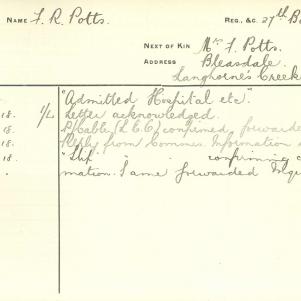 NAME F. R. Potts. REG. &C. 27th Ba
NEXT OF KIN Mr. F. Potts.
ADDRESS Bleasdale.
Langhorne's Creek
"Admitted Hospital etc"
18. 1/L Letter acknowledged.
18. P/Cable (L.E.C.) confirmed forwarde
18. Reply from Commn. Information
18. "Slip" " . confirming
mation. Same forwarded Enqu